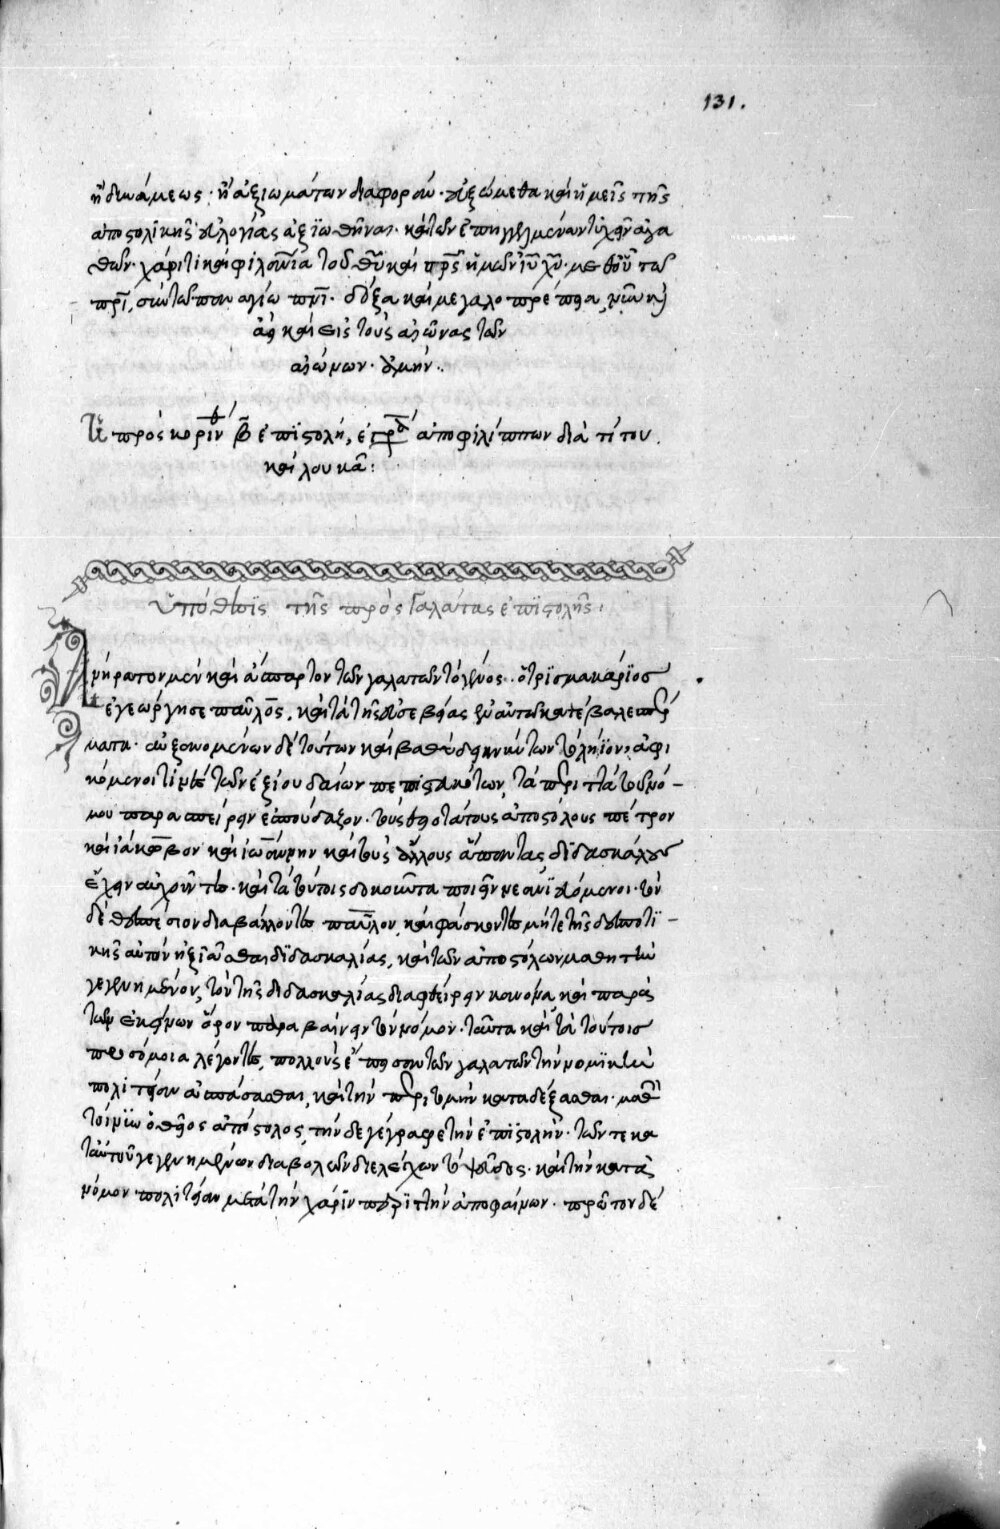 131.
ἢ δυνάμεως · ἢ ἀξιωμάτων διαφοράν · εὐξώμεθα καὶ ἡμεῖς τῆς
ἀποστολικῆς εὐλογίας ἀξιωθῆναι · καὶ τῶν ἐπηγγελμένων τυχεῖν ἀγα
θῶν · χάριτι καὶ φιλανθρωπίᾳ τοῦ θῡ καὶ σρ̄ς ἡμῶν ῑῡ χ̄ῡ · μεθ' οὗ τῶ
πρ̄ι, σὺν τῶ παναγίω πνι · δόξα καὶ μεγαλοπρέπεια, νῦν καὶ
ἀεὶ καὶ εἰς τοὺς αἰῶνας τῶν
αἰώνων · ἀμήν ·
Ἡ πρὸς κορινθ β̄ ἐπιστολή, ἐγράφη ἀπὸ φιλίππων διὰ τίτου
καὶ λουκᾶ :
Ὑπόθεσις τῆς πρὸς Γαλάτας ἐπιστολῆς ·
Ἀνήροτον μὲν καὶ ἄσπαρτον τῶν γαλατῶν τὸ γένος · ὁ τρισμακάριος
ἐγεώργησε παῦλος, καὶ τὰ τῆς εὐσεβείας ἐν αὐτῶ κατέβαλε σπέρ
ματα · αὐξανομένων δὲ τούτων καὶ βαθὺ δεικνύντων τὸ λήϊον, ἀφι
κόμενοί τινες τῶν ἐξ ἰουδαίων πεπιστευκότων, τὰ περιττὰ τοῦ νό-
μου παρασπείρειν ἐσπούδαζον · τοὺς θειοτάτους ἀποστόλους πέτρον
καὶ ἰάκωβον καὶ ἰωάννην καὶ τοὺς ἄλλους ἅπαντας διδασκάλους
ἔχειν αὐχοῦντες · καὶ τὰ τούτοις δοκοῦντα ποιεῖν νεανιευόμενοι · τὸν
δὲ θεσπέσιον διαβάλλοντες παῦλον, καὶ φάσκοντες μήτε τῆς δεσποτι-
κῆς αὐτὸν ἠξιῶσθαι διδασκαλίας, καὶ τῶν ἀποστόλων μαθητὴν
γεγενημένον, τὸν τῆς διδασκαλίας διαφθείρειν κανόνα, καὶ παρὰ
τῶν ἐκείνων ὅρον παραβαίνειν τὸν νόμον · ταῦτα καὶ τὰ τούτοις
παρόμοια λέγοντες, πολλοὺς ἔπεισαν τῶν γαλατῶν τὴν νομικὴν
πολιτείαν ἀσπάσασθαι, καὶ τὴν περιτομὴν καταδέξασθαι · μαθὼν
τοίνυν ὁ θεῖος ἀπόστολος, τήνδε γέγραφε τὴν ἐπιστολὴν · τῶν τε κα
τ' αὐτοῦ γεγενημένων διαβολῶν διελέγχων τὸ ψεῦδος · καὶ τὴν κατὰ
νόμον πολιτείαν μετὰ τὴν χάριν περιττὴν ἀποφαίνων · πρῶτον δὲ